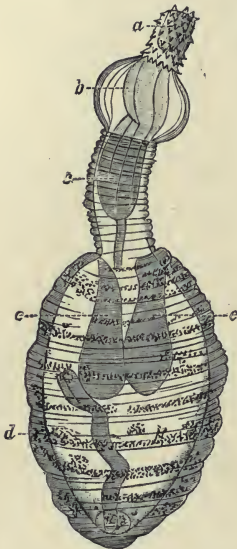 a
b
c
e e
d